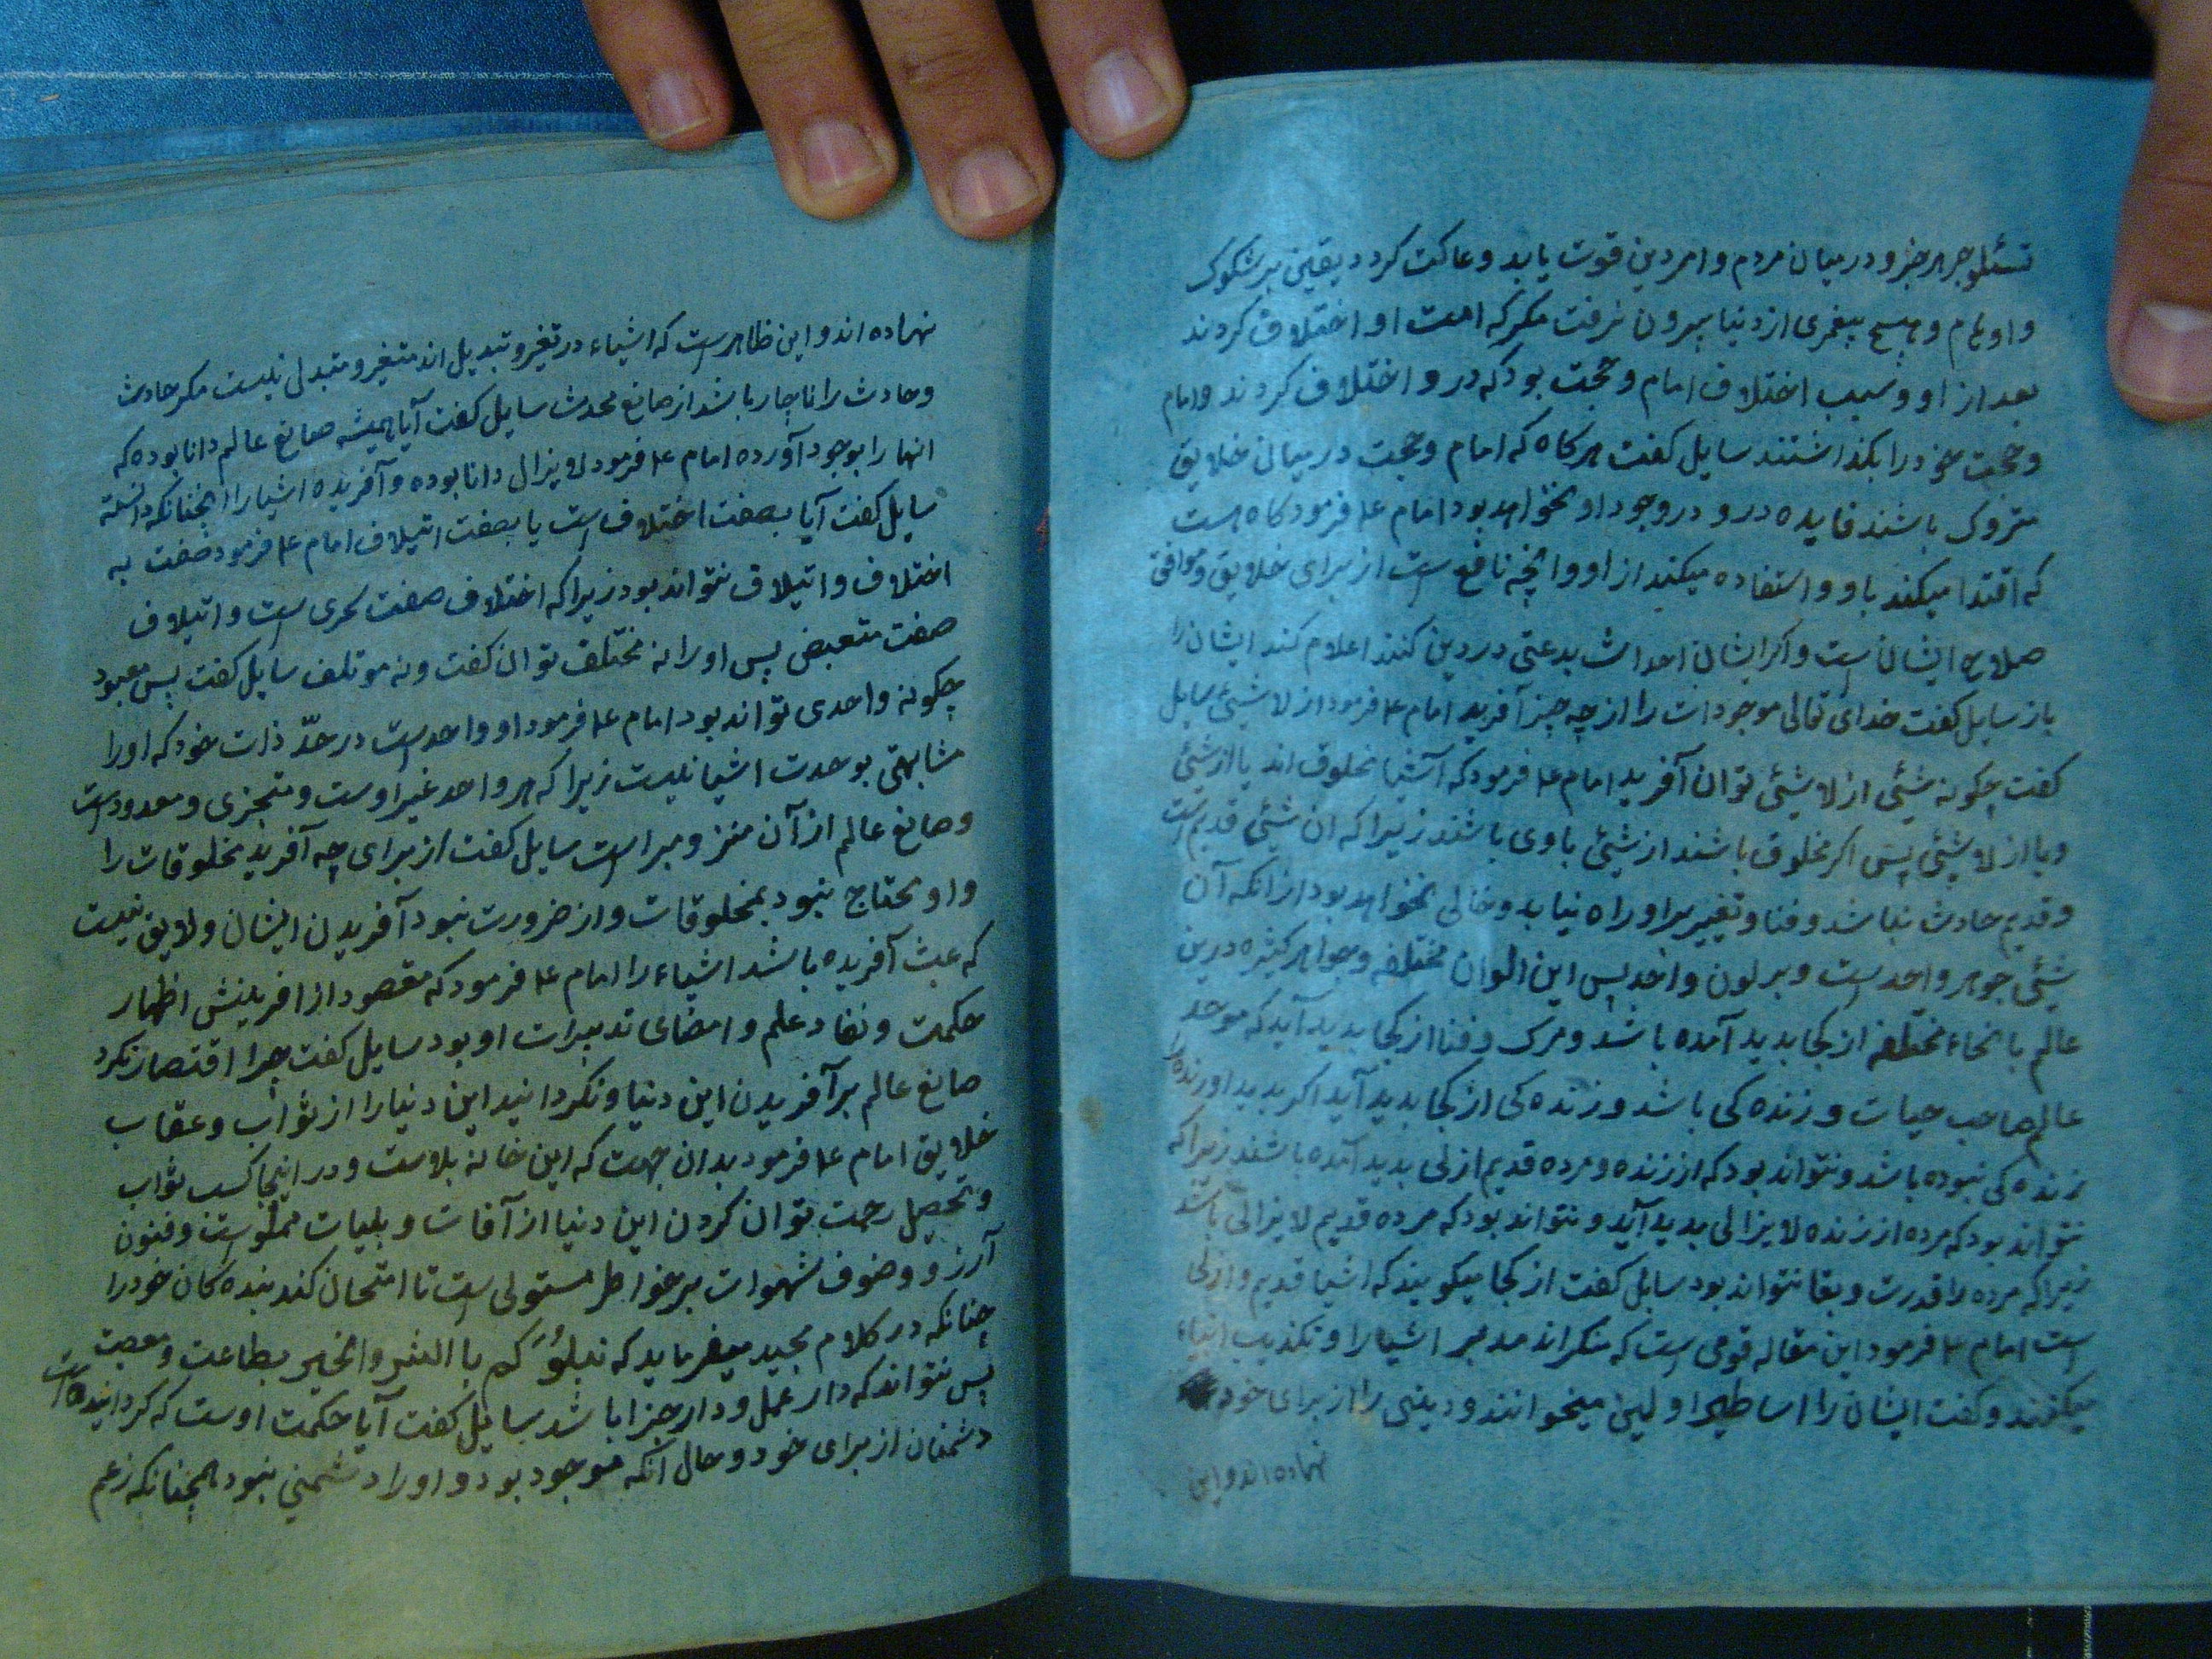 تسئلو جرهر جزو در میان مردم و امر دین قوت یابد و عاکت کردد یقین بر شکوک
و اوهام و هیچ پیغمری از دنیا بیرون نرفت مکر که امت او اختلاف کردند
بعد از او و سبب اختلاف امام و حجت بود که در و اختلاف کردند و امام
و حجت خود را بکذاشتند سایل کفت هر کاه که امام و حجت در میان خلایق
متروک باشند فایده در و در وجود او نخواهد بود امام ع فرمود کاه هست
که اقتدا میکند باو و استفاده میکنید از او و انچه نافع است از برای خلایق و موافق
صلاح ایشان است و اکر ایشان احداث بدعتی در دین کنند اعلام کند ایشان را
باز سایل کفت خدای تعالی موجودات را از چه چیز آفرید امام ع فرمود از لا شیئی سایل
کفت چکونه شیئی از لا شیئی توان آفرید امام ع فرمود که آشیا مخلوق اند یا از شیئی
و یا از لا شیئی پس اکر مخلوق باشند از شیئی باوی باشند زیرا که ان شیئی قدیم است
و قدیم حادث نباشد و فنا و تغییر براو راه نیابد و خالی نخواهد بود از انکه آن
شیئی جوهر واحد است و بر لون واحد پس این الوان مختلفه و جواهر کثیره درین
عالم با نحاء مختلفه از کجا بدید آمده باشد و مرک و فنا از کجا بدید آید که موحد
عالم صاحب حیات و زنده کی باشد و زنده کی از کجا بدید آید اکر بدید اورنده را
زنده کی نبوده باشد و نتواند بود که از زنده و مرده قدیم ازلی بدید آمده باشند زیرا که
نتواند بود که مرده از زنده لایزالی بدید آید و نتواند بود که مرده قدیم لایزالی باشد
زیرا که مرده را قدرت و بقا نتواند بود سایل کفت از کجا میکویند که اشیا قدیم و ازلی
است امام ع فرمود این مقاله قومی است که منکراند مدبر اشیا را و تکذیب انبیاء
میکنند و کفت ایشان را اساطیر اولین میخوانند و دینی را از برای خود
نهاده اند و این
نهاده اند و این ظاهر است که اشیاء در تغیر و تبدیل اند متغیر و متبدل نیست مکر حادث
و حادث را ناچار باشد از صانع محدث سایل کفت آیا همیشه صانع عالم دانا بوده که
انها را بوجود آورده امام ع فرمود لایزال دانا بوده و آفریده اشیا را همچنانکه دانسته
سایل کفت آیا بصفت اختلاف است یا بصفت ایتلاف امام ع فرمود صفت به
اختلاف و ایتلاف نتواند بود زیرا که اختلاف صفت تجزی است و ایتلاف
صفت متعبض پس او را نه مختلف توان کفت و نه موتلف سایل کفت پس معبود
چکونه واحدی تواند بود امام ع فرمود او واحد است در حدّ ذات خود که او را
مشابهتی بوحدت اشیا نلیست زیرا که هر واحد غیر اوست و متجزی و معدود است
و صانع عالم از آن منز و مبراست سایل کفت از برای چه آفرید مخلوقات را
و او محتاج نبود بمخلوقات و از ضرورت نبود آفریدن ایشان و لایق نیست
که عبث آفریده باشد اشیاء را امام ع فرمود که مقصود از افرینش اظهار
حکمت و نفاد علم و امضای تدبیرات او بود سایل کفت چرا اقتصار نکرد
صانع عالم بر آفریدن این دنیا و نکردانید این دنیا را از ثواب و عقاب
خلایق امام ع فرمود بدان جهت که این خانه بلاست و در اینجا کسب ثواب
و تحصیل رحمت توان کردن این دنیا از آفات و بلیات مملوست و فنون
آرزو و ضوف شهوات بر خواطر مستولی است تا امتحان کند بنده کان خود را
چنانکه در کلام مجید میفرماید که نبلوُ کم با الشر و الخیر بطاعت و معصیت
پس نتواند که دار عمل و دار جزا باشد سایل کفت آیا حکمت اوست که کردانیده است
دشمنان از برای خود و حال آنکه موجود بود و او را دشمنی نبود همچنانکه زعم